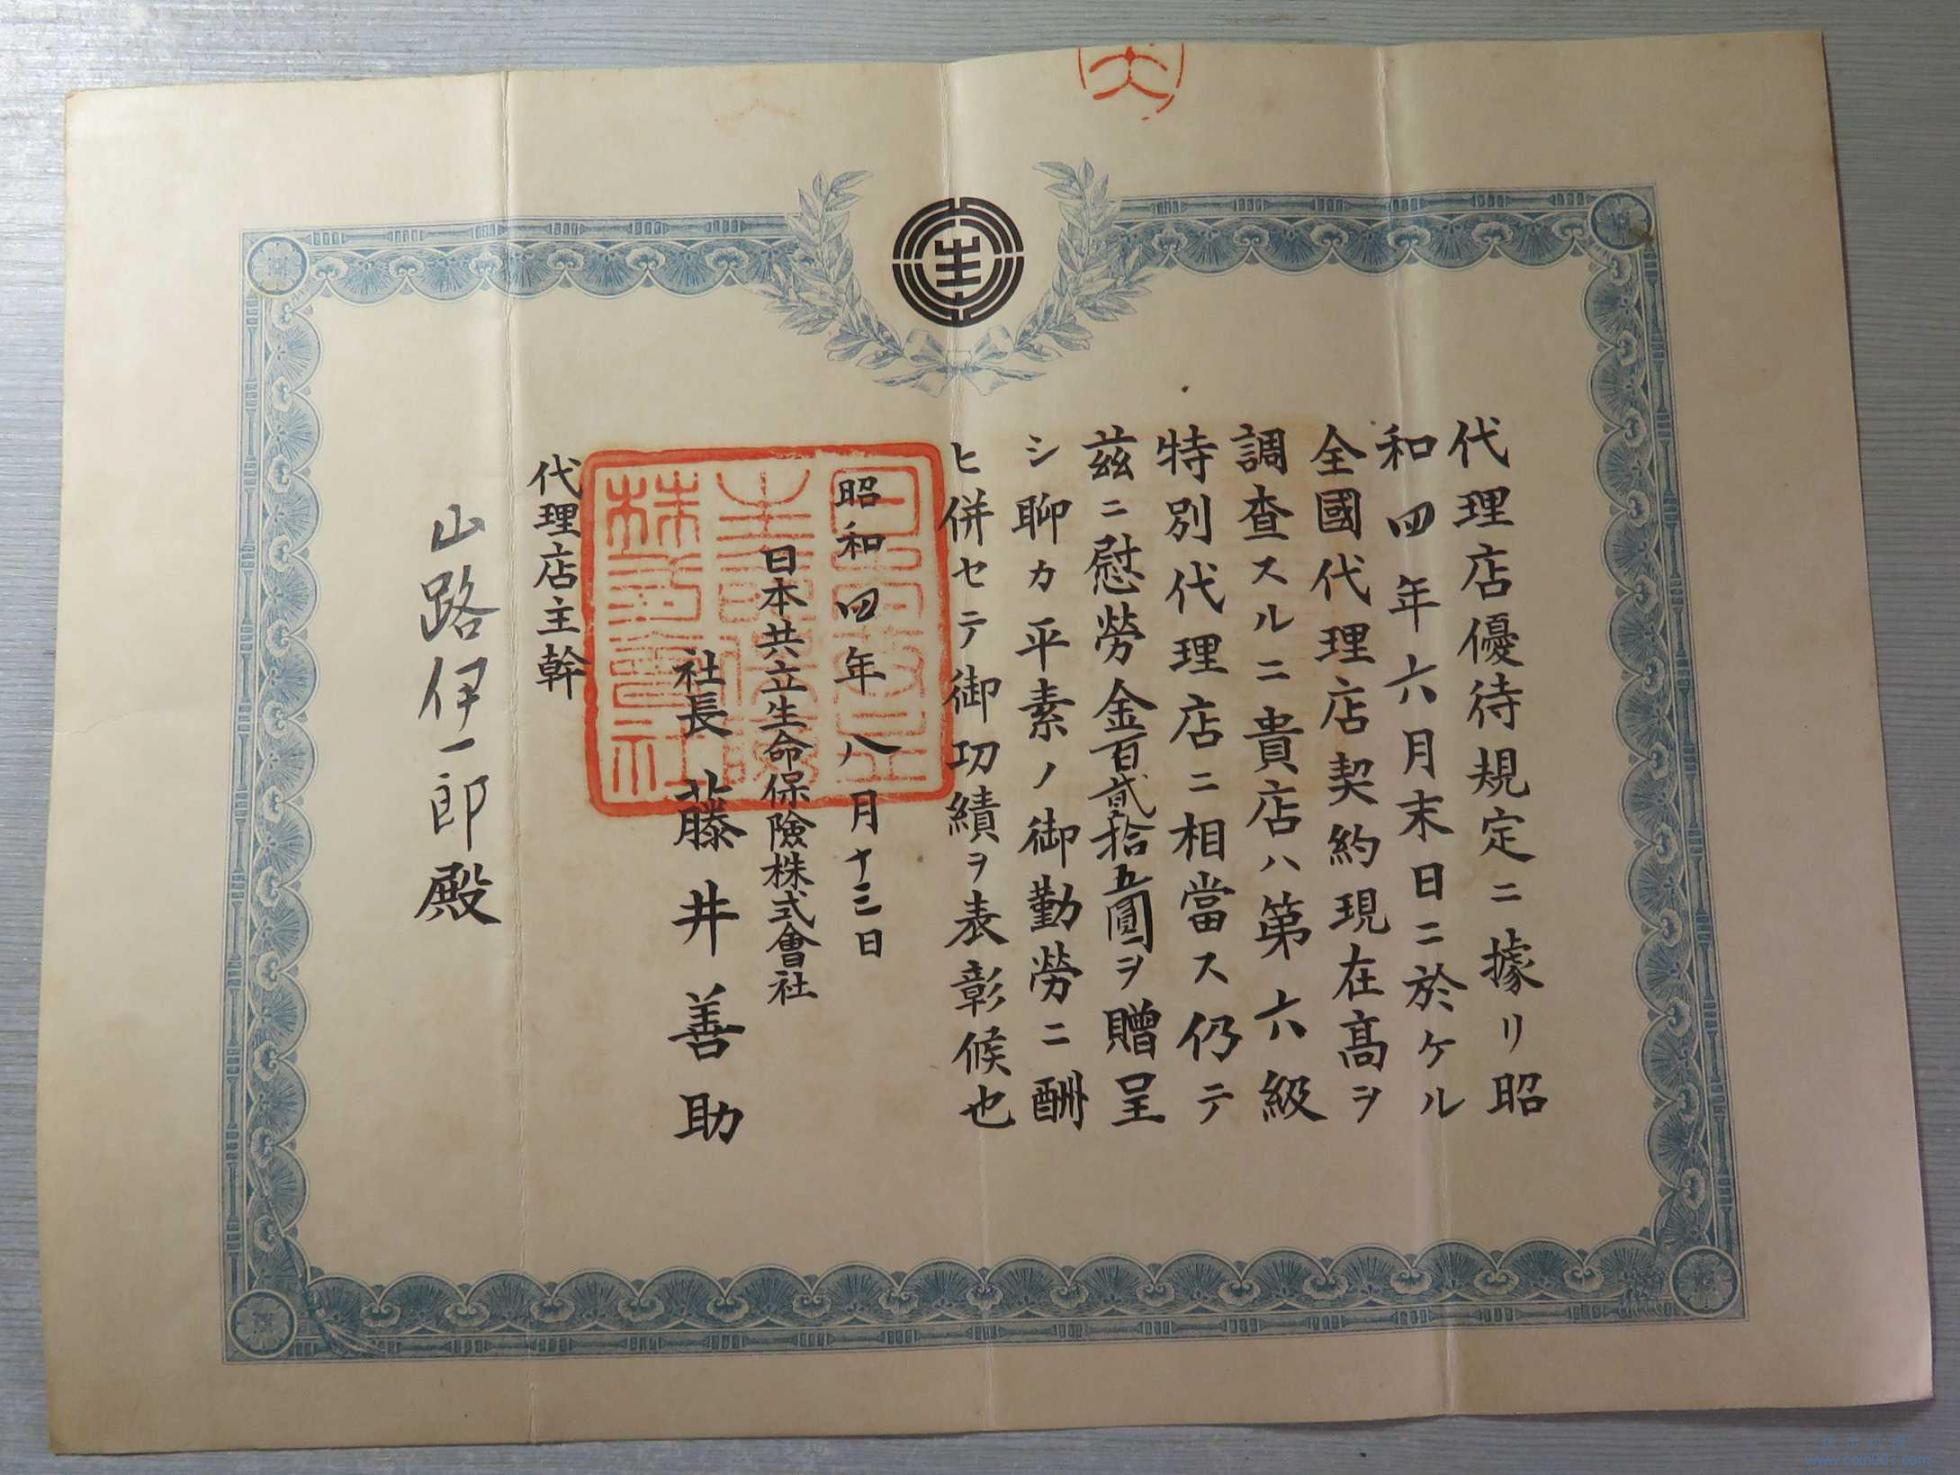 代理店優待規定ニ據リ昭
和四年六月末日ニ於ケル
全國代理店契約現在高ヲ
調査スルニ貴店ハ第六級
特別代理店ニ相當ス仍テ
茲ニ慰勞金百貳拾五圓ヲ贈呈
シ聊カ平素ノ御勤勞ニ酬
ヒ併セテ御功績ヲ表彰候也
昭和四年八月十三日
日本共立生命保險株式會社
社長 藤井善助
代理店主幹
山路伊一郎殿
日本共立
生命保險
株式會社